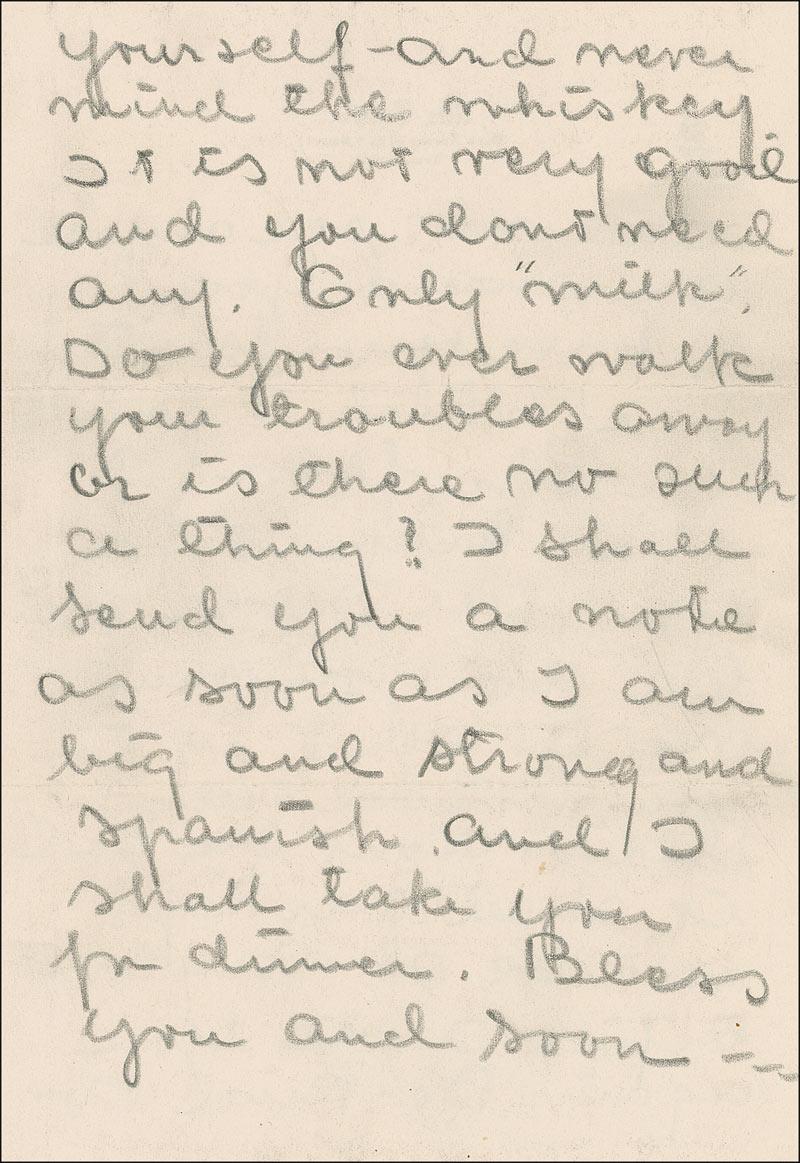 yourself - and never
mind the whiskey
It is not very good
and you dont need
any. Only "milk".
Do you ever walk
your troubles away
or is there no such
a thing? I shall
send you a note
as soon as I am
big and strong and
spanish and I
shall take you
for dinner. Bless
you and soon --